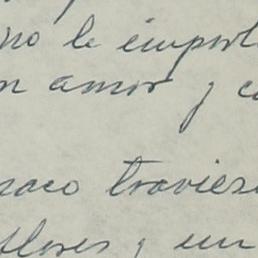 no le import
n amor y c
raco travies
flores y un